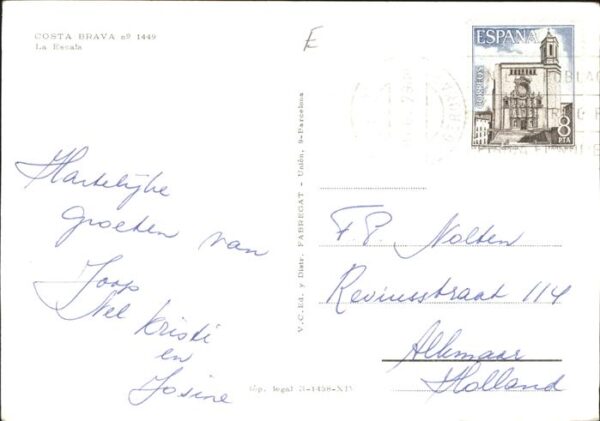 COSTA BRAVA nº 1449
La Escala
E
ESPAÑA
CORREOS
8
PTA
Hartelijke
groeten van
Joop
Nel Kristi
en
Josine
V.C. Ed. y Distr. FABREGAT - Unión, 9-Barcelona
F.P. Nolten
Reviusstraat 114
Alkmaar
Holland